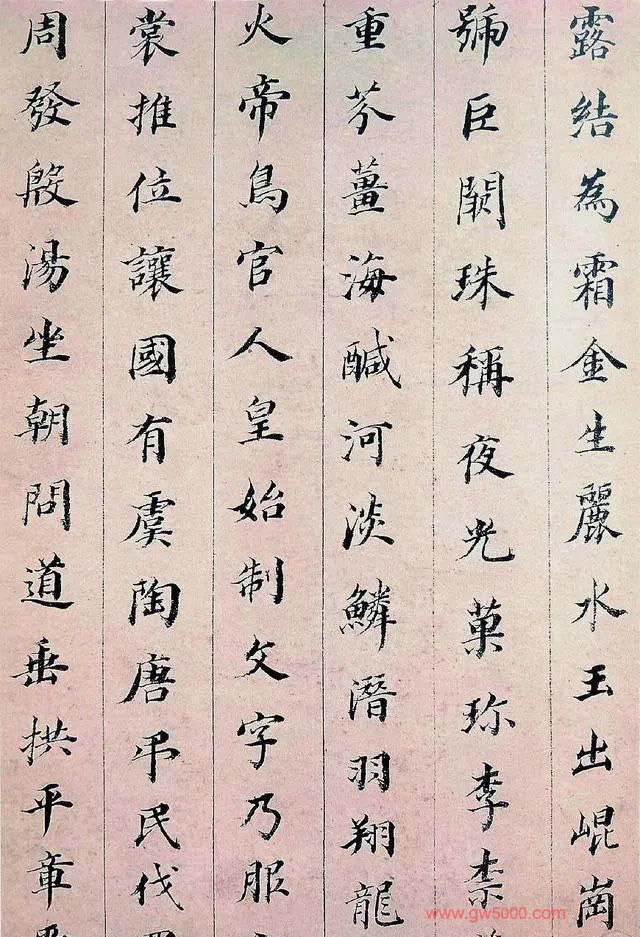 露結為霜金生麗水玉出崐崗
號巨闕珠稱夜光菓珎李柰
重芥薑海醎河淡鱗潛羽翔龍
火帝鳥官人皇始制文字乃服
裳推位讓國有虞陶唐弔民伐
周發殷湯坐朝問道垂拱平章
www.gw5000.com